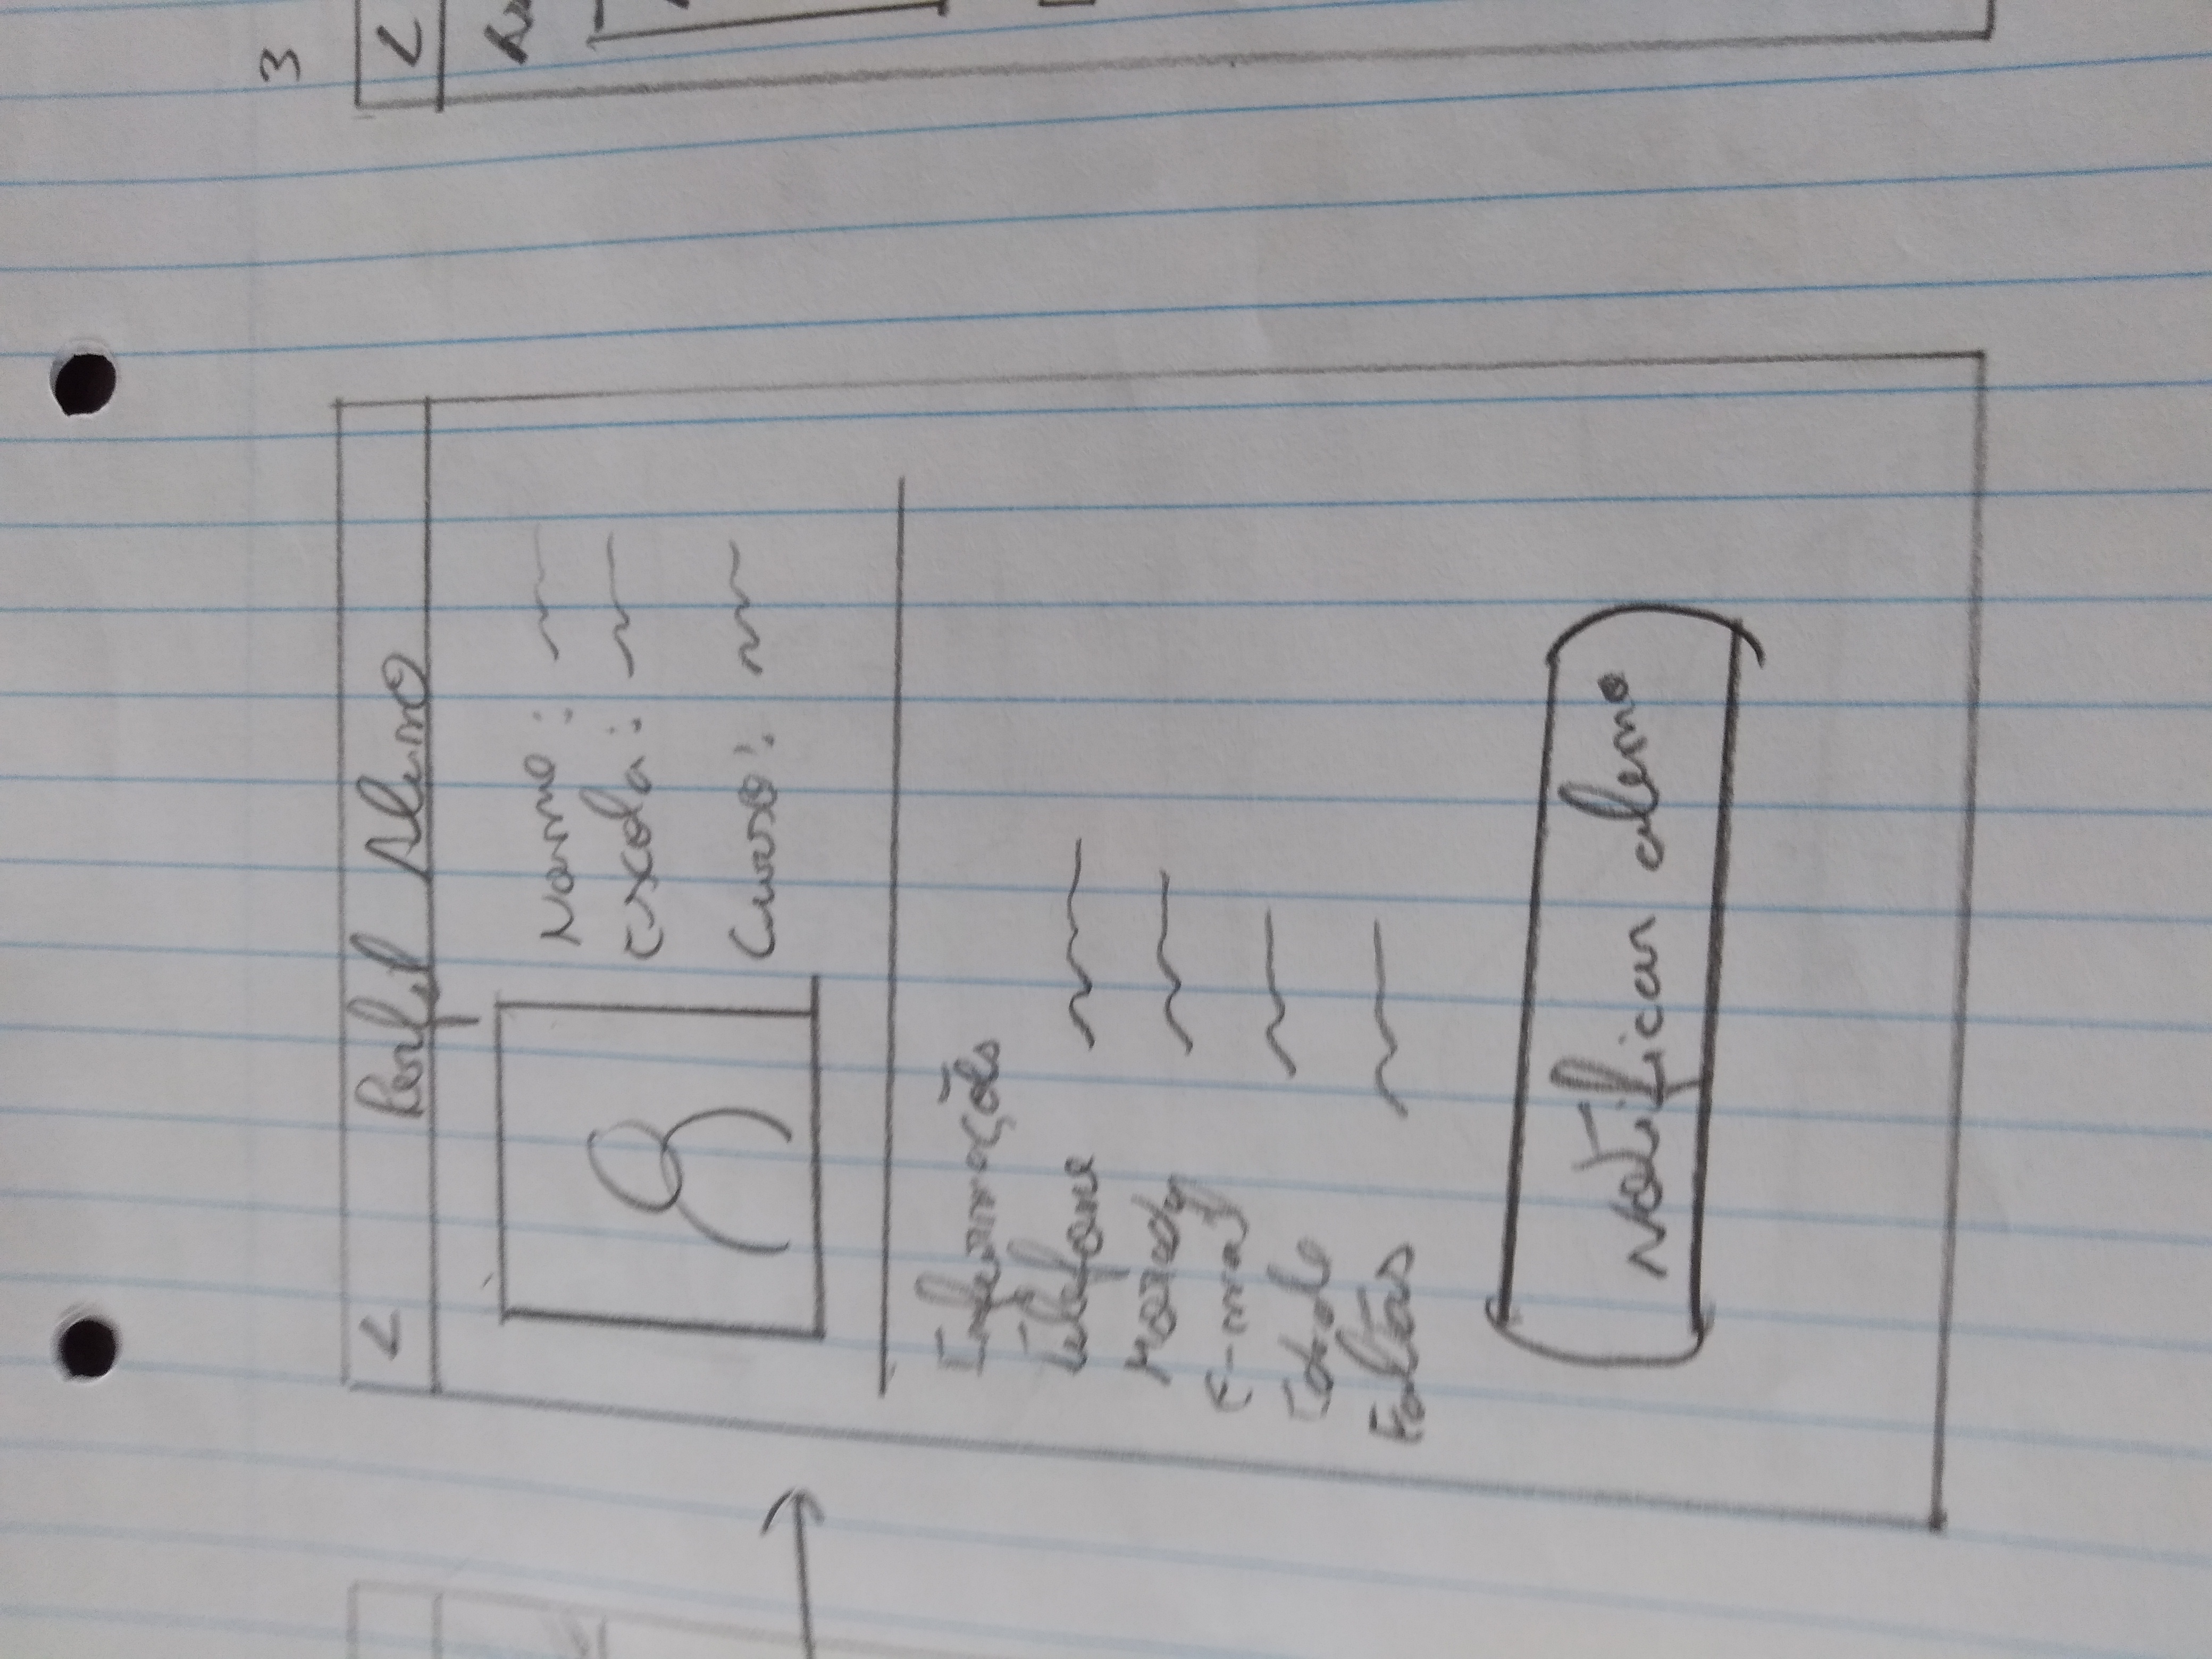 < Perfil Aluno
Nome:
Escola:
Curso:
Informações
Telefone
Morada
E-mail
Idade
Faltas
Notificar aluno
3
<